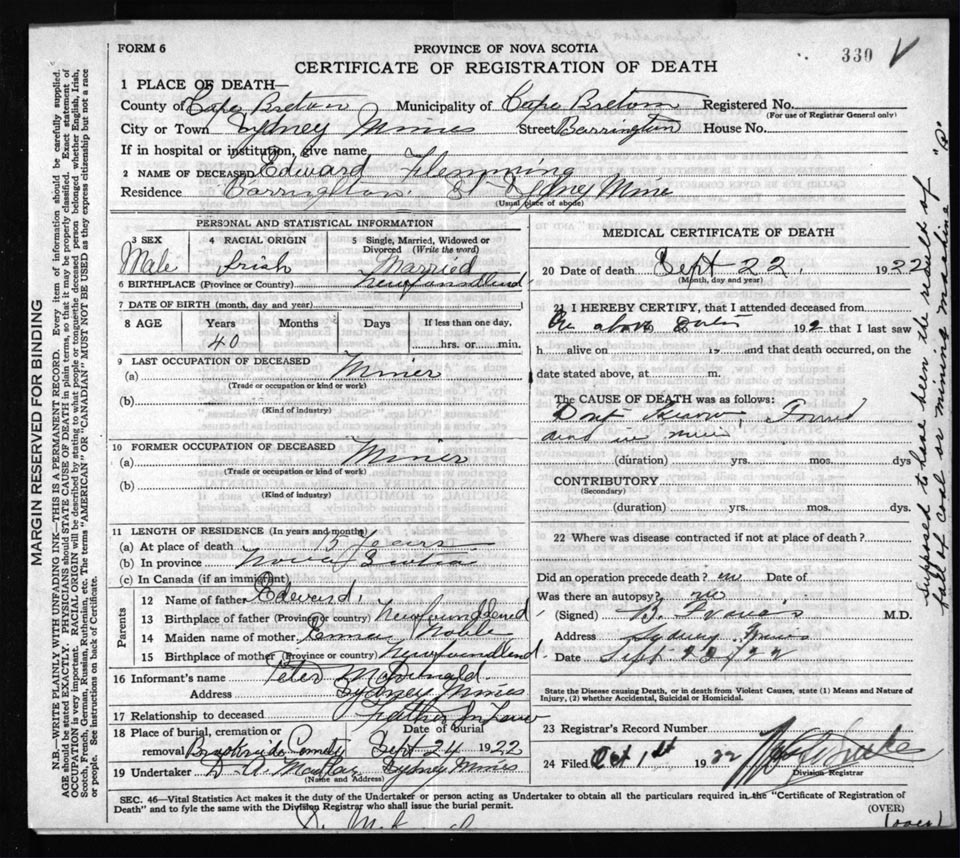 FORM 6
PROVINCE OF NOVA SCOTIA
CERTIFICATE OF REGISTRATION OF DEATH
330
1 PLACE OF DEATH—
County of Cape Breton Municipality of Cape Breton Registered No.
(For use of Registrar General only)
City or Town Sydney Mines Street Barrington House No.
If in hospital or institution, give name
2 NAME OF DECEASED Edward Flemming
Residence Barrington St Sydney Mine
(Usual place of abode)
PERSONAL AND STATISTICAL INFORMATION
3 SEX 4 RACIAL ORIGIN 5 Single, Married, Widowed or Divorced (Write the word)
Male Irish Married
6 BIRTHPLACE (Province or Country) Newfoundland
7 DATE OF BIRTH (month, day and year)
8 AGE Years Months Days If less than one day,
40 hrs. or min.
9 LAST OCCUPATION OF DECEASED
(a) Miner
(Trade or occupation or kind of work)
(b)
(Kind of industry)
10 FORMER OCCUPATION OF DECEASED
(a) Miner
(Trade or occupation or kind of work)
(b)
(Kind of industry)
11 LENGTH OF RESIDENCE (In years and months)
(a) At place of death Years
(b) In province Nova Scotia
(c) In Canada (if an immigrant)
Parents
12 Name of father Edward
13 Birthplace of father (Province or country) Newfoundland
14 Maiden name of mother Emma Noble
15 Birthplace of mother (Province or country) Newfoundland
16 Informant's name Peter McDonald
Address Sydney Mines
17 Relationship to deceased Father In Law
18 Place of burial, cremation or removal Date of burial
Brookside Cemetery Sept 24 1922
19 Undertaker D. A. Sydney Mines
(Name and Address)
MEDICAL CERTIFICATE OF DEATH
20 Date of death Sept 22, 1922
(Month, day and year)
21 I HEREBY CERTIFY, that I attended deceased from
On above date 192 that I last saw
h alive on 19 and that death occurred, on the
date stated above, at m.
The CAUSE OF DEATH was as follows:
Dont Know, Found
dead in mine
(duration) yrs. mos. dys
CONTRIBUTORY
(Secondary)
(duration) yrs. mos. dys.
22 Where was disease contracted if not at place of death?
Did an operation precede death? no Date of
Was there an autopsy? no
(Signed) B. Francis M.D.
Address Sydney Mines
Date Sept 23/22
State the Disease causing Death, or in death from Violent Causes, state (1) Means and Nature of
Injury, (2) whether Accidental, Suicidal or Homicidal.
23 Registrar's Record Number
24 Filed Oct 1st 1922
Division Registrar
SEC. 46—Vital Statistics Act makes it the duty of the Undertaker or person acting as Undertaker to obtain all the particulars required in the "Certificate of Registration of
Death" and to fyle the same with the Division Registrar who shall issue the burial permit.
(OVER)
(over)
MARGIN RESERVED FOR BINDING
N.B.—WRITE PLAINLY WITH UNFADING INK—THIS IS A PERMANENT RECORD. Every item of information should be carefully supplied.
AGE should be stated EXACTLY. PHYSICIANS should STATE CAUSE OF DEATH in plain terms, so that it may be properly classified. Exact statement of
OCCUPATION is very important. RACIAL ORIGIN will be described by stating to what people or tongue the deceased person belonged whether English, Irish,
Scotch, French, German, Russian, Ruthenian, etc. The terms "AMERICAN" OR "CANADIAN" MUST NOT BE USED as they express citizenship but not a race
or people. See Instructions on back of Certificate.
Supposed to have been the results of
fall of coal or mining machine